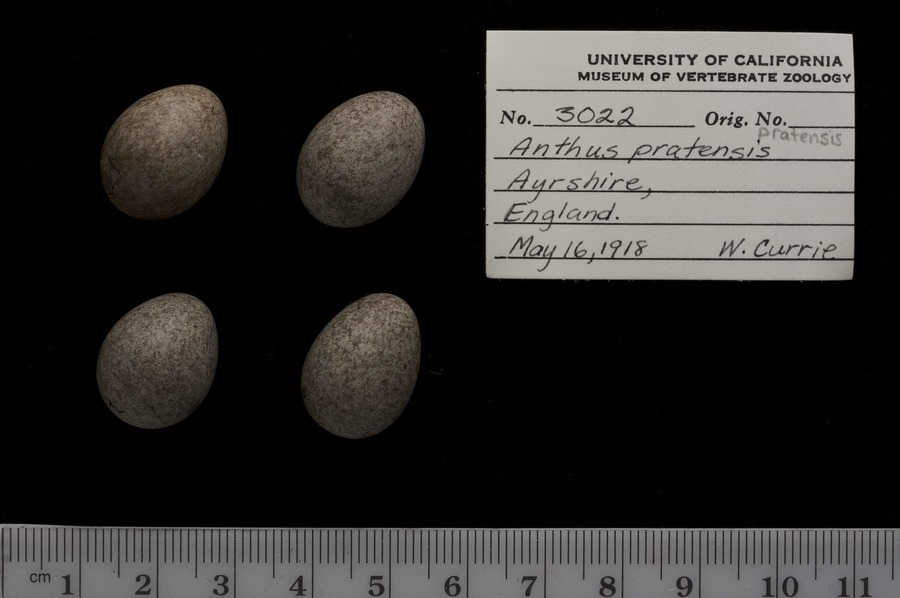 UNIVERSITY OF CALIFORNIA
MUSEUM OF VERTEBRATE ZOOLOGY
No. 3022 Orig. No.
pratensis
Anthus pratensis
Ayrshire,
England.
May 16, 1918 W. Currie
cm 1 2 3 4 5 6 7 8 9 10 11